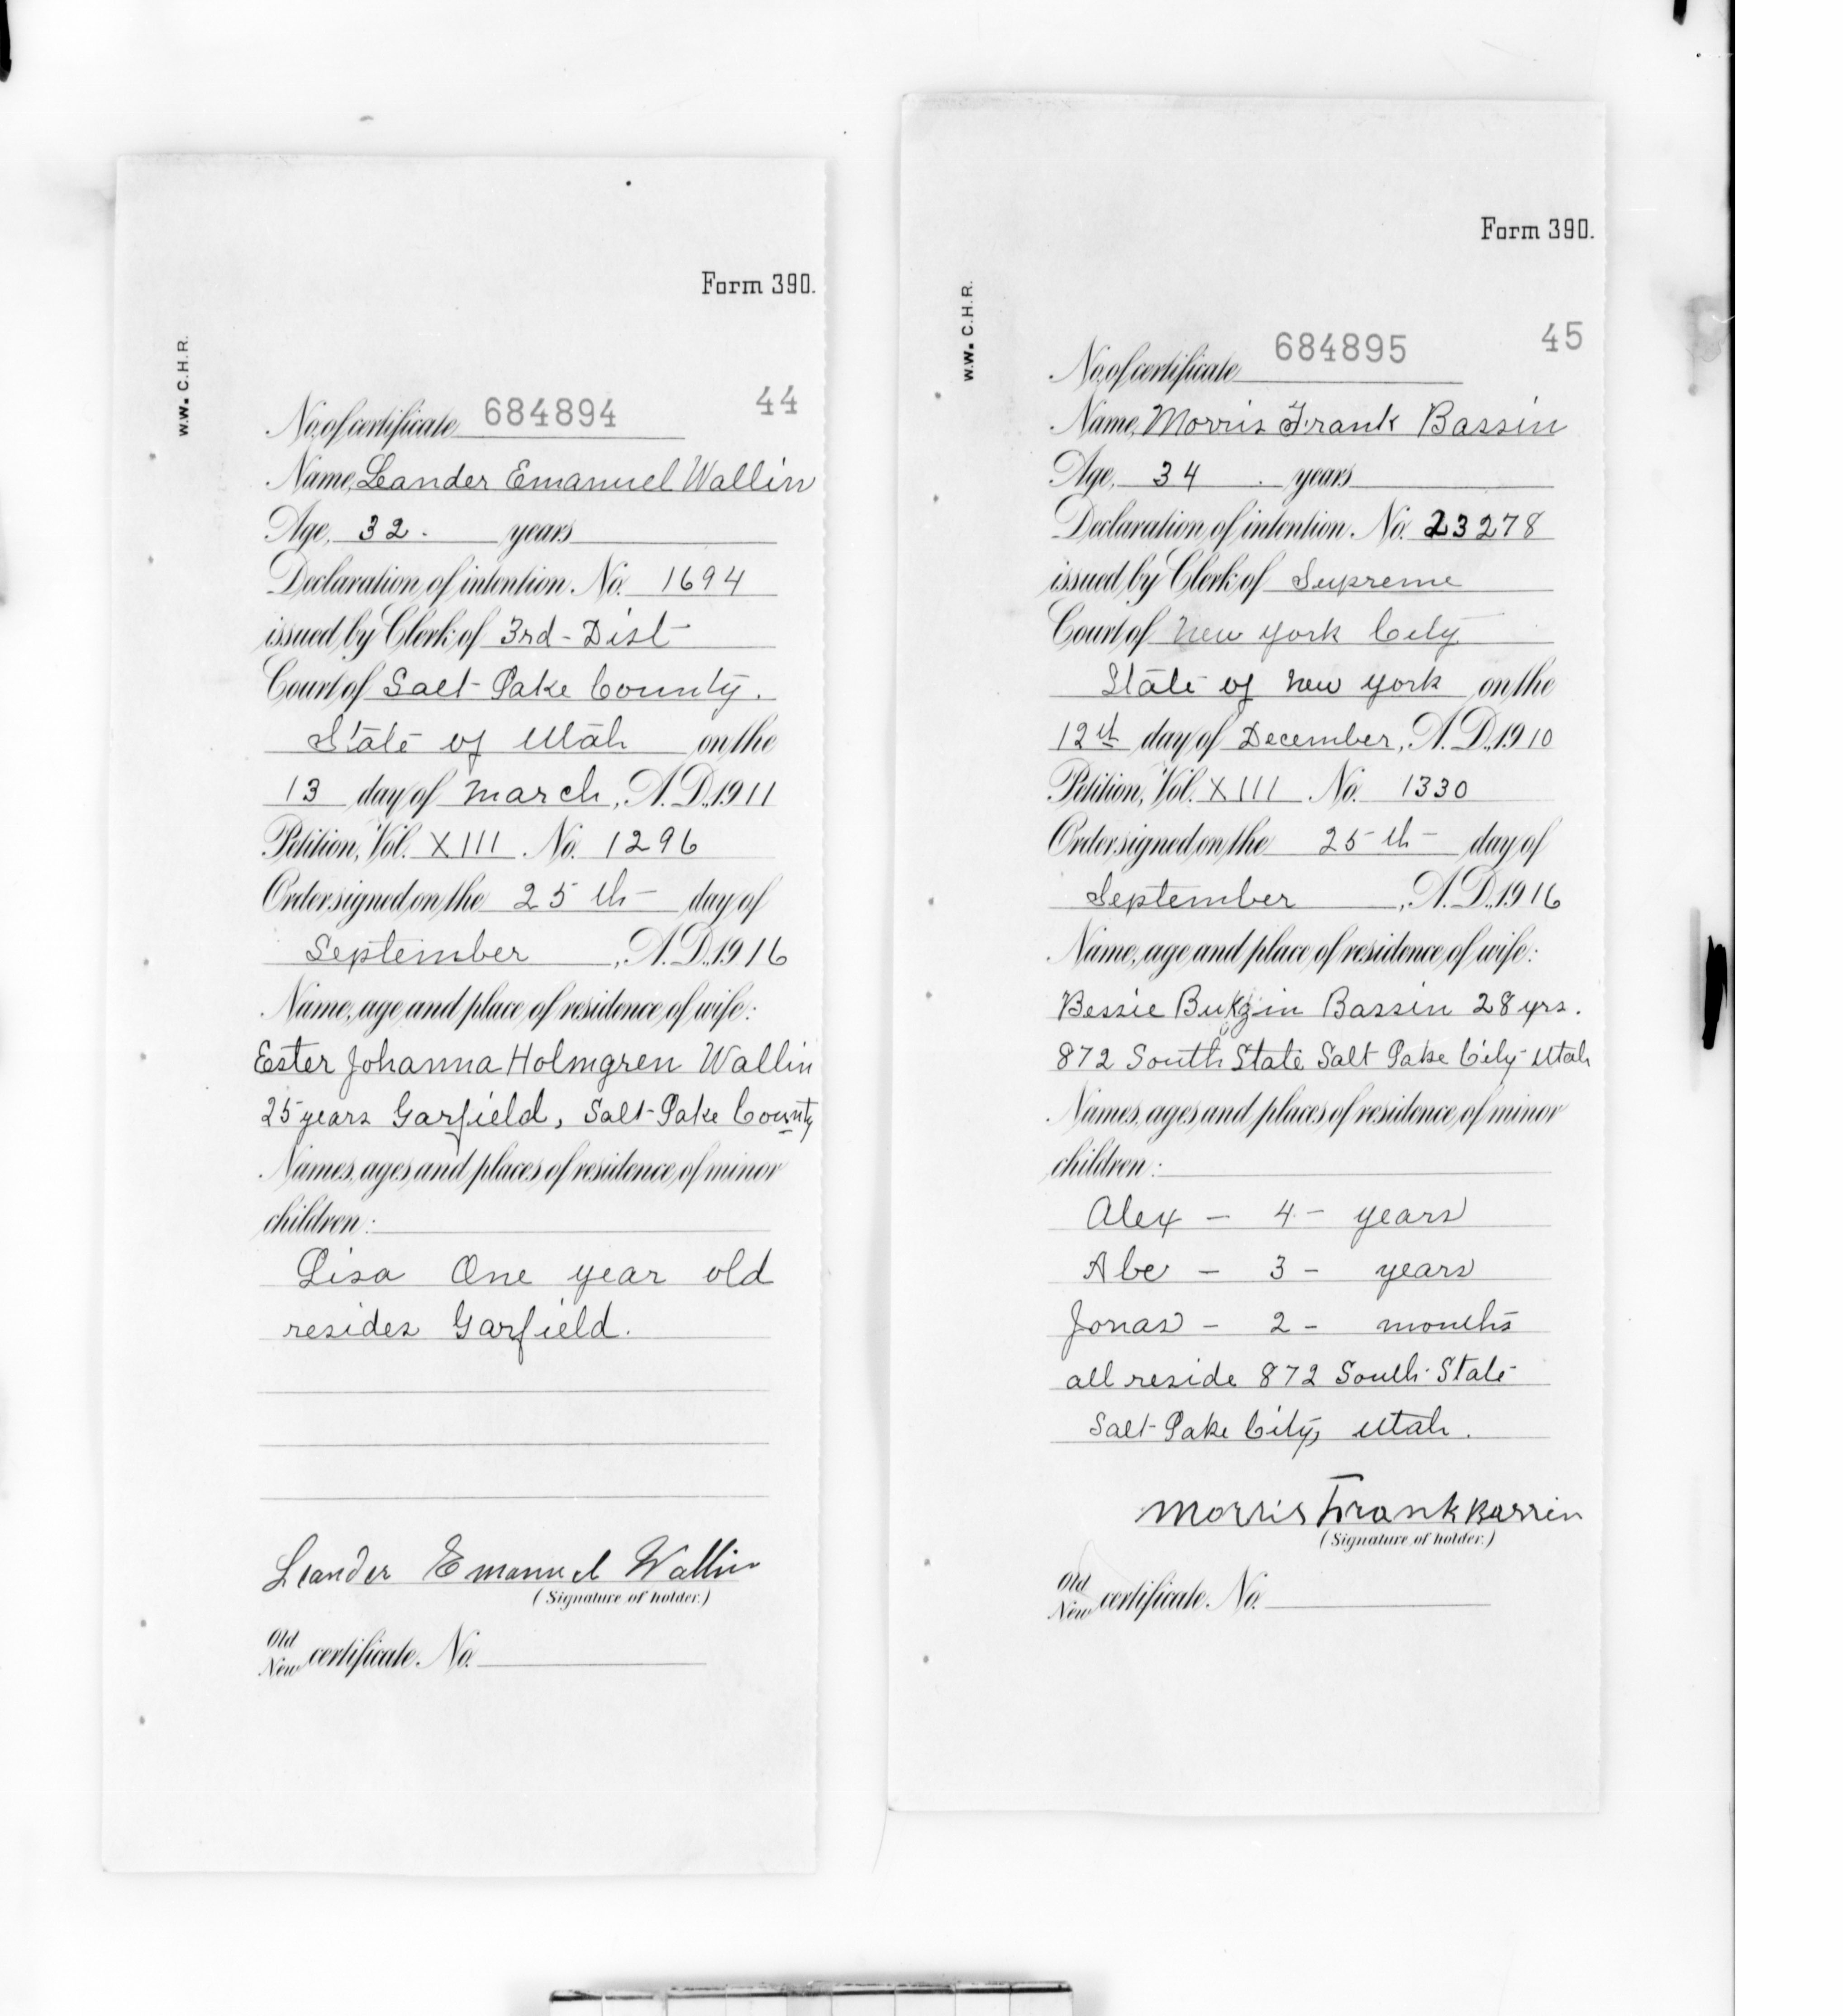 Form 390.
W.W. C.H.R.
44
No. of certificate 684894
Name, Leander Emanuel Wallin
Age, 32. years
Declaration of intention. No. 1694
issued by Clerk of 3rd - Dist
Court of Salt Lake County.
State of Utah on the
13 day of March, A.D. 1911
Petition, Vol. XIII. No. 1296
Order signed on the 25 th day of
September, A.D. 1916
Name, age and place of residence of wife:
Ester Johanna Holmgren Wallin
25 years Garfield, Salt Lake County
Names, ages and places of residence of minor
children:
Lisa One year old
resides Garfield.
Leander Emanuel Wallin
(Signature of holder.)
Old
New certificate. No.
Form 390.
W.W. C.H.R.
45
No. of certificate 684895
Name, Morris Frank Bassin
Age, 34 years
Declaration of intention. No. 23278
issued by Clerk of Supreme
Court of New York City
State of New York on the
12th day of December, A.D. 1910
Petition, Vol. XIII No. 1330
Order signed on the 25 th day of
September, A.D. 1916
Name, age and place of residence of wife:
Bessie Bassin 28 yrs.
872 South State Salt Lake City Utah
Names, ages and places of residence of minor
children:
Alex - 4 - years
Abe - 3 - years
Jonas - 2 - months
all reside 872 South State
Salt Lake City, Utah.
Morris Frank Bassin
(Signature of holder.)
Old
New certificate. No.